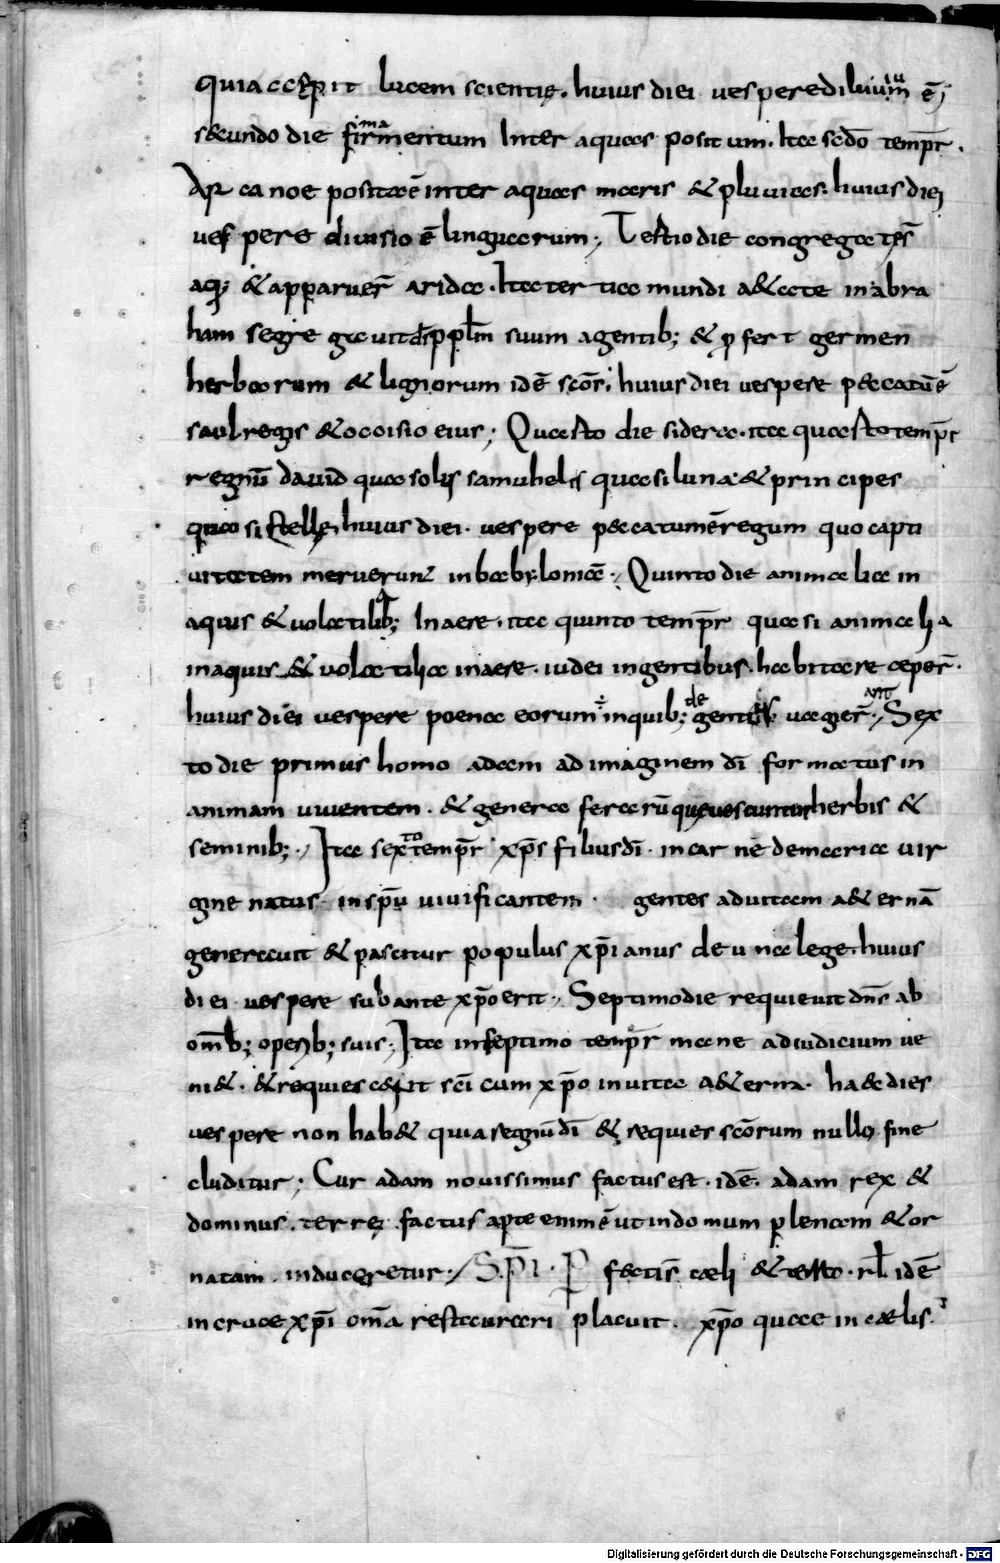 quia accepit lucem scientię. huius diei uespere diluuium ē;
secundo die firmamentum Inter aquas positum. Ita scdō tempr̄.
Arca noe posita ē inter aquas maris & pluuias. huius diei
uespere diuisio ē linguarum; Tertio die congregatę s̄
aq; & apparuer̄ arida. Ita tertia mundi aetate in abra
ham segregauit ds̄ pplm̄ suum a gentib; & ꝓfert germen
herbarum & lignorum idē scōr. huius diei uespere peccatū ē
saul regis & occisio eius; Quarto die sidera. ita quarto tempr̄
regnū dauid quasi solis samuhelis quasi luna & principes
quasi stellę. huius diei. uespere peccatum ē regum quo capti
uitatem meruerunt in babyloniā. Quinto die animalia in
aquis & uolatilib; In aere. ita quinto tempr̄ quasi animalia
in aquis & uolatilia in aere. iudei in gentibus. habitare ceper̄.
huius diei uespere poena eorum ÷ in quib; de gentes uagant̄. Sex
to die primus homo adam ad imaginem dī formatus in
animam uiuentem. & genera ferarū quę uescuntur herbis &
seminib; Ita sexto tempr̄ xp̄s filius dī. in carne de maria uir
gine natus. in sp̄u uiuificantem. gentes ad uitam aeternā
generauit & pascitur populus xp̄ianus de una lege. huius
diei uespere sub antexp̄o erit. Septimo die requieuit dn̄s ab
omīb; operib; suis; Ita in septimo tempr̄ mane ad iudicium ue
ni&. & requies erit scī cum xp̄o in uita aeterna. haec dies
uespere non hab& quia regnū dī & requies scōrum nullo fine
cluditur; Cur adam nouissimus factus est. idē. adam rex &
dominus. terrę factus apte enim ē ut in domum plenam & or
natam. induceretur. / S.P̄I. P fectis cæli & terra. rł idē
in cruce xp̄i om̄a restaurari placuit. xp̄o quae in cælis.